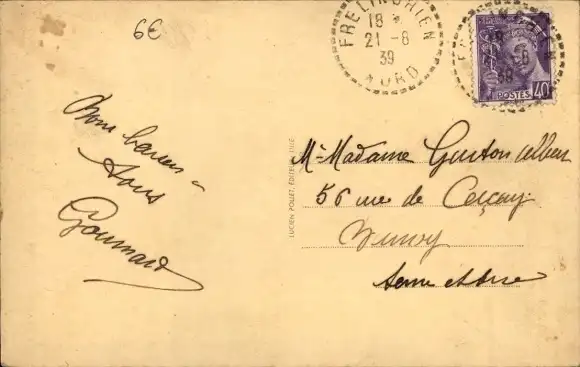 6€
FRELINGHIEN
18 *
21 - 8
39
NORD
POSTES 40
Bons baisers
à tous
Goumard
LUCIEN POLLET, ÉDITEUR, LILLE
Mr Madame Gaston
56 rue de Cerçay
Brunoy
Seine et Oise